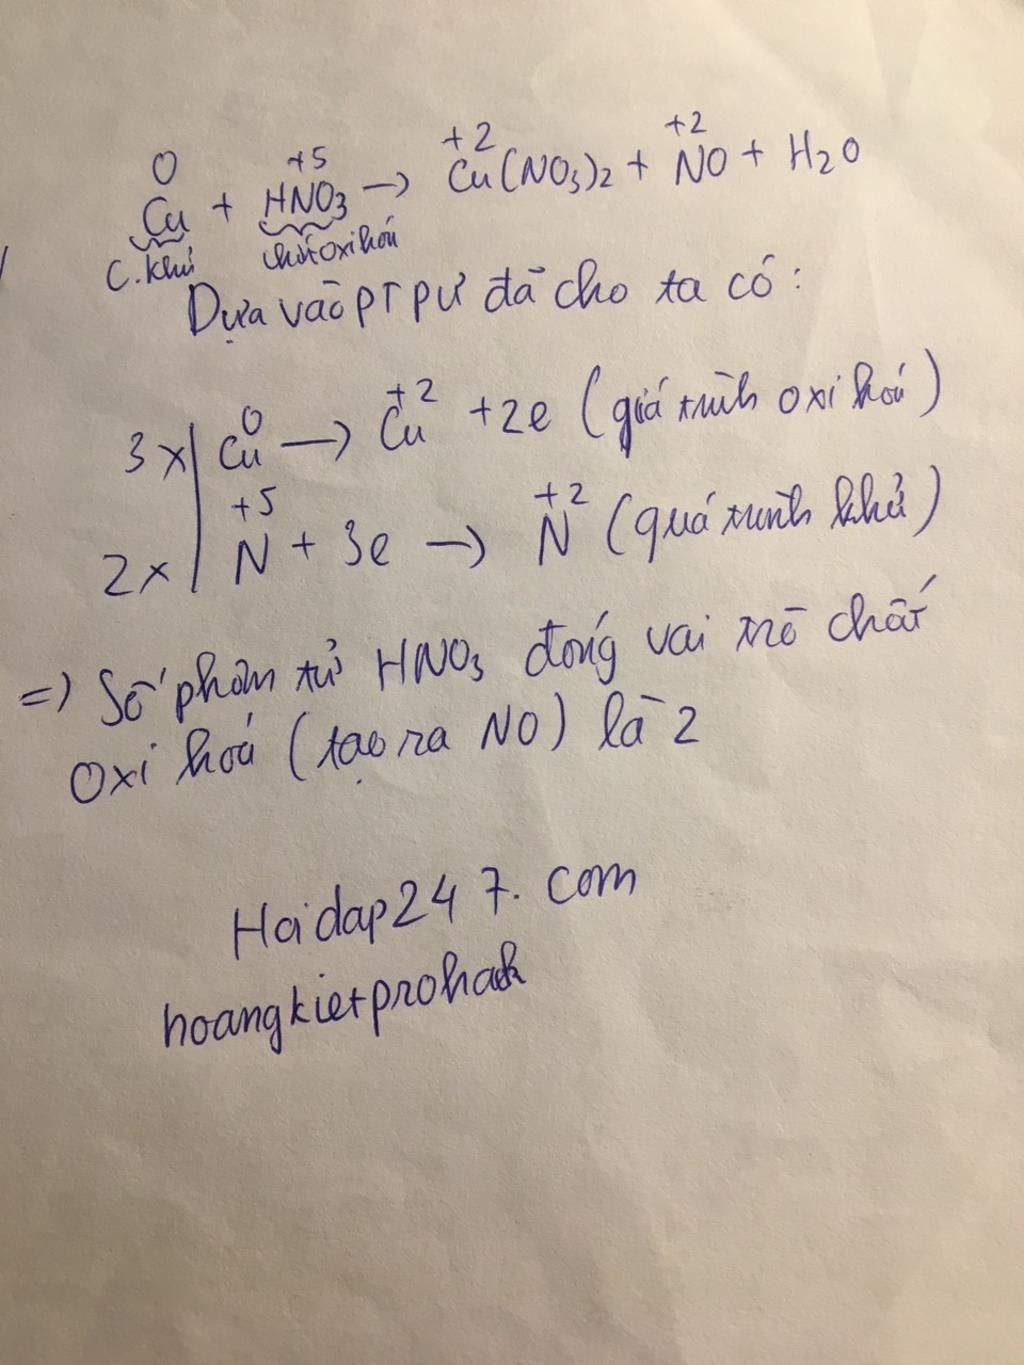 0 +5 +2 +2
Cu + HNO3 → Cu(NO3)2 + NO + H2O
C.khử chất oxi hoá
Dựa vào PT pư đã cho ta có:
3x| Cu⁰ → Cu⁺² +2e (quá trình oxi hoá)
+5 +2
2x| N + 3e → N (quá trình khử)
=) Số phân tử HNO3 đóng vai trò chất
oxi hoá (tạo ra NO) là 2
Hoidap247.com
hoangkietprohack